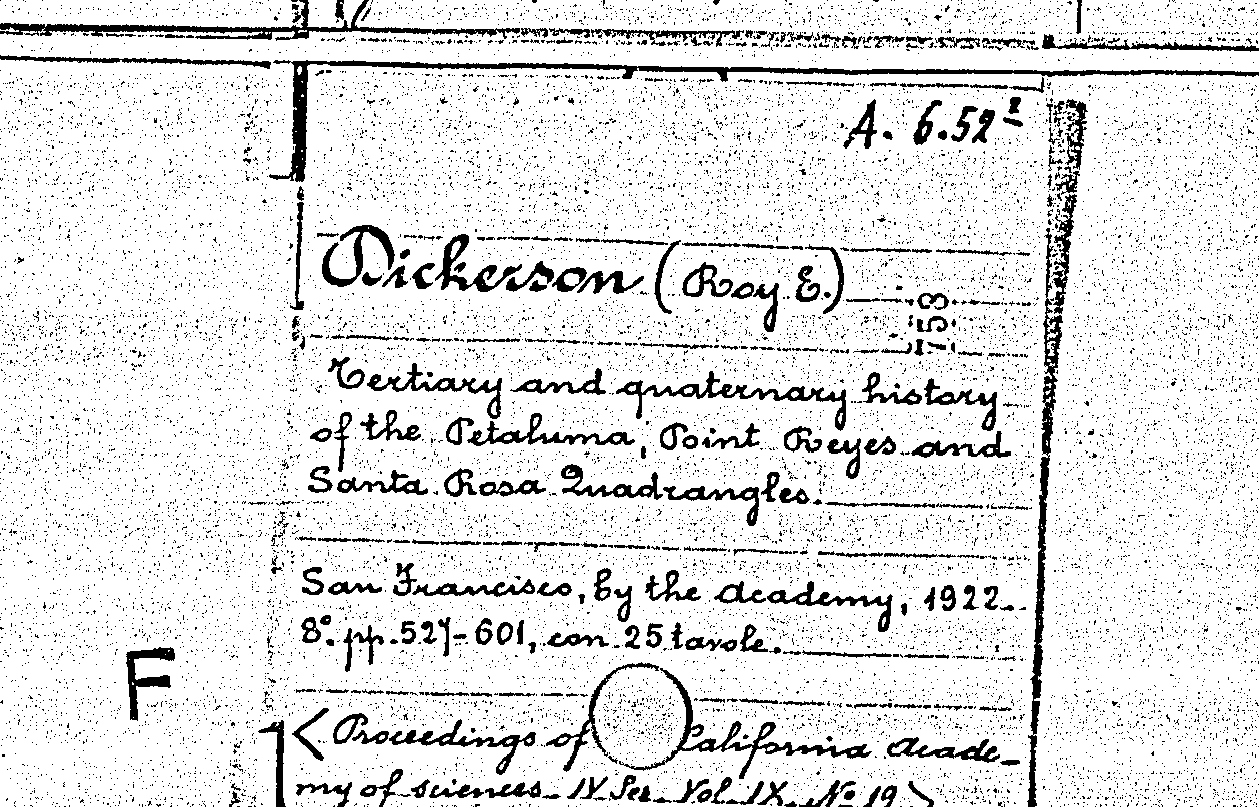 A. 6.52²
Dickerson (Roy E.)
153
Tertiary and quaternary history
of the Petaluma, Point Reyes and
Santa Rosa Quadrangles.
San Francisco, by the Academy, 1922.
8°. pp. 527-601, con 25 tavole.
F
< Proceedings of California Acade-
my of sciences. IV Ser. Vol. IX. No 19 >